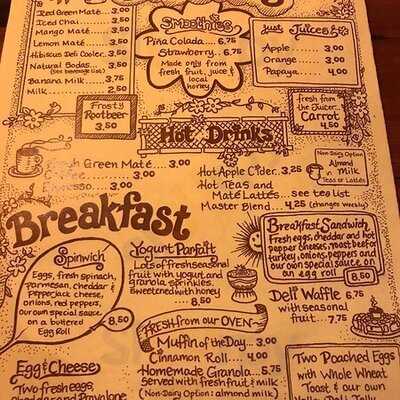 Iced Green Maté... 3.00
Iced Chai... 3.00
Mango Maté 3.00
Lemon Maté 3.00
Hibiscus Deli Cooler 3.00
Natural Sodas
(See beverage list)
Banana Milk 3.75
Milk 2.50
Frosty
Rootbeer
3.50
Smoothies
Piña Colada... 6.75
Strawberry... 6.75
Made only from
fresh fruit, juice &
local
honey
Just Juices
Apple 3.00
Orange 3.00
Papaya 4.00
fresh from
the Juicer...
Carrot
4.50
Hot Drinks
Fresh Green Maté... 3.00
3.00
3.00
Hot Apple Cider.. 3.25
Hot Teas and
Maté Lattés... see tea list
Master Blend... 4.25 (changes weekly)
Non-Dairy Option
Almond
Milk
in Teas or Lattés
Breakfast
Spinwich
Eggs, fresh spinach,
parmesan, cheddar &
pepperjack cheese,
onions, red peppers,
our own special sauce,
on a buttered
Egg Roll
8.50
Yogurt Parfait
Lots of fresh seasonal
fruit with yogurt and
granola sprinkles.
Sweetened with honey
... 8.50
Breakfast Sandwich
Fresh eggs, cheddar and hot
pepper cheeses, most beef or
turkey, onions, peppers and
our own special sauce on
an egg roll
8.50
Deli Waffle 6.75
with seasonal
fruit... 7.75
FRESH from our OVEN
Muffin of the Day... 3.00
Cinnamon Roll... 4.00
Homemade Granola... 5.75
Served with fresh fruit & milk
(Non-Dairy Option: almond milk)
Egg & Cheese
Two fresh eggs,
cheddar and Provolone
Two Poached Eggs
with Whole Wheat
Toast & our own
Valley Deli Jelly